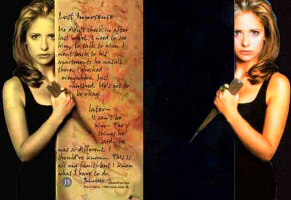 Lost Innocense
He didn't check in after
last night. I need to see
him, to talk to him. I
went back to his
apartments he wasn't
there. I checked
everywhere. Just
vanished. He's got to
be okay.
later—
It can't be
him. The
things he
said. He
was so different. I
should've known. This is
all my fault but I know
what I have to do.
13